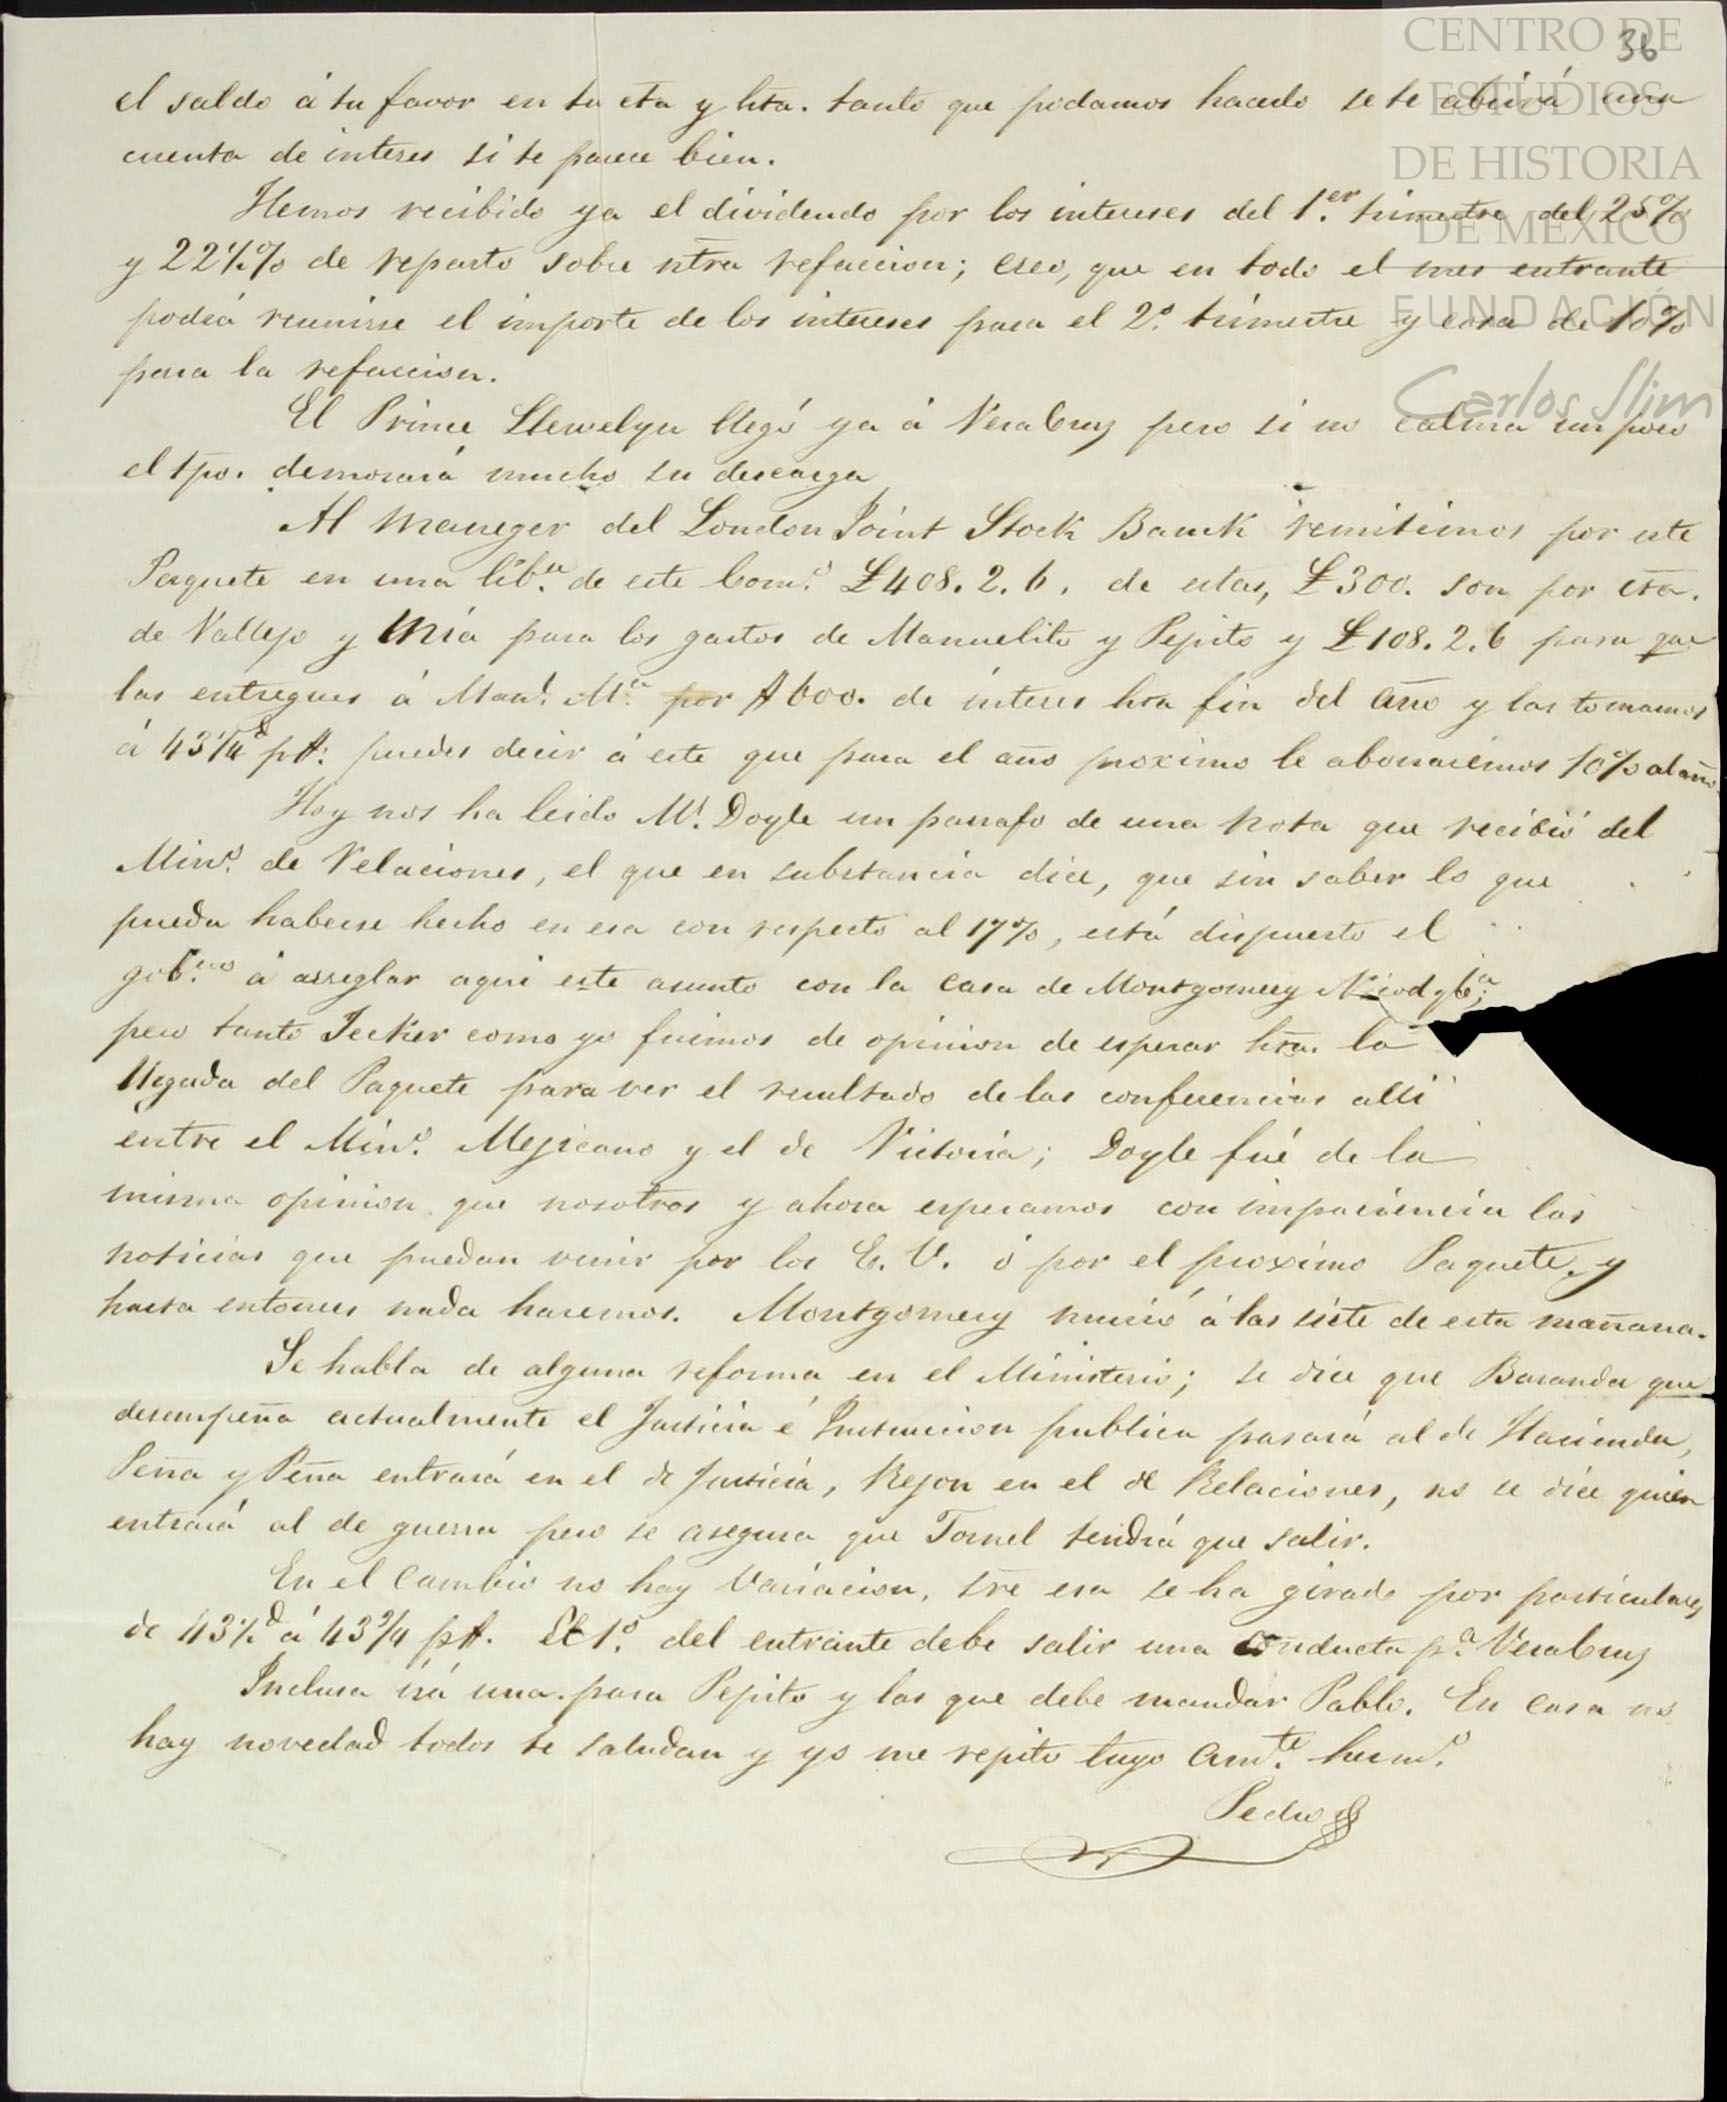 36
CENTRO DE
ESTUDIOS
DE HISTORIA
DE MÉXICO
FUNDACIÓN
Carlos Slim
el saldo á tu favor en tu cta y hta. tanto que podamos hacerlo se te abrirá una
cuenta de interes si te parece bien.
Hemos recibido ya el dividendo por los intereses del 1.er trimestre del 25%
y 22½% de reparto sobre ntra refaccion; creo, que en todo el mes entrante
podrá reunirse el importe de los intereses para el 2.o trimestre y cosa de 10%
para la refaccion.
El Prince Llewelyn llegó ya á Veracruz pero si no calma un poco
el tpo. demorará mucho su descarga
Al Maneger del London Joint Stock Bank remitimos por este
Paquete en una lib.za de este Com.o £408.2.6. de estas, £300. son por cta.
de Vallejo y Mia para los gastos de Manuelito y Pepito y £108.2.6 para que
las entregues á Man.l M.a por $600. de interes hta fin del año y las tomamos
á 43¼d p$: puedes decir á este que para el año proximo le abonaremos 10% al año.
Hoy nos ha leido Mr. Doyle un parrafo de una nota que recibió del
Min.o de Relaciones, el que en substancia dice, que sin saber lo que
pueda haberse hecho en esa con respecto al 17%, está dispuesto el
gob.no á arreglar aqui este asunto con la casa de Montgomery Nicod y C.a;
pero tanto Jecker como yo fuimos de opinion de esperar hta. la
llegada del Paquete para ver el resultado de las conferencias alli
entre el Min.o Mejicano y el de Victoria; Doyle fué de la
misma opinion que nosotros y ahora esperamos con impaciencia las
noticias que puedan venir por los E. U. ó por el proximo Paquete, y
hasta entonces nada haremos. Montgomery murió á las siete de esta mañana.
Se habla de alguna reforma en el Ministerio; se dice que Baranda que
desempeña actualmente el Justicia é Instruccion publica pasará al de Hacienda,
Peña y Peña entrará en el de Justicia, Rejon en el de Relaciones, no se dice quien
entrará al de guerra pero se asegura que Tornel tendrá que salir.
En el Cambio no hay Variacion, sre esa se ha girado por particulares
de 43½d á 43¾ p$. El 1.o del entrante debe salir una conducta p.a Veracruz
Inclusa irá una para Pepito y las que debe mandar Pablo. En casa no
hay novedad todos te saludan y yo me repito tuyo am.te herm.o
Pedro